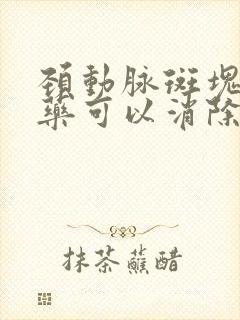 頚動脉斑塊
藥可以消除
抹茶蘸醋